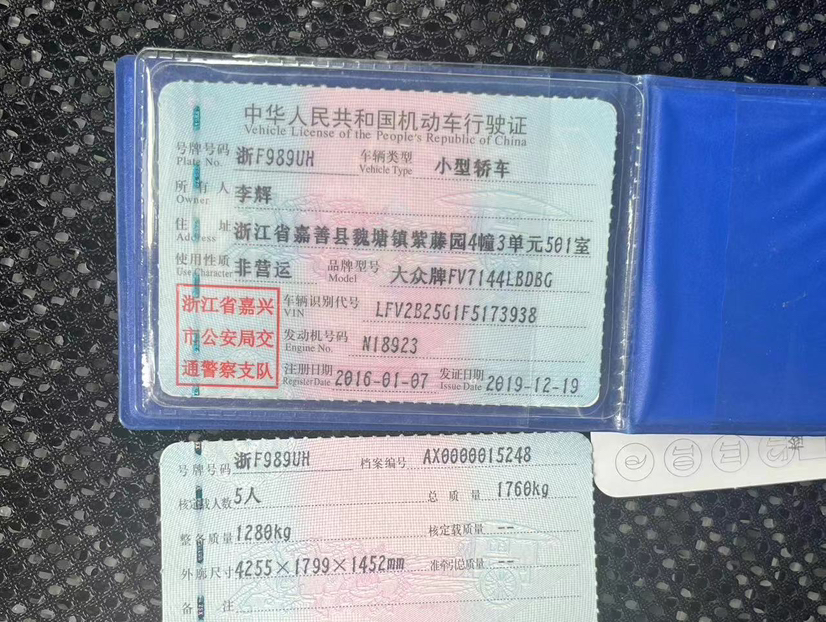 中华人民共和国机动车行驶证
Vehicle License of the People's Republic of China
号牌号码 浙F989UH 车辆类型 小型轿车
Plate No. Vehicle Type
所有人 李辉
Owner
住址 浙江省嘉善县魏塘镇紫藤园4幢3单元501室
Address
使用性质 非营运 品牌型号 大众牌FV7144LBDBG
Use Character Model
浙江省嘉兴
市公安局交
通警察支队
车辆识别代号 LFV2B25G1F5173938
VIN
发动机号码 N18923
Engine No.
注册日期 2016-01-07 发证日期 2019-12-19
Register Date Issue Date
号牌号码 浙F989UH 档案编号 AX0000015248
核定载人数 5人 总质量 1760kg
整备质量 1280kg 核定载质量 --
外廓尺寸 4255×1799×1452mm 准牵引总质量 --
备注